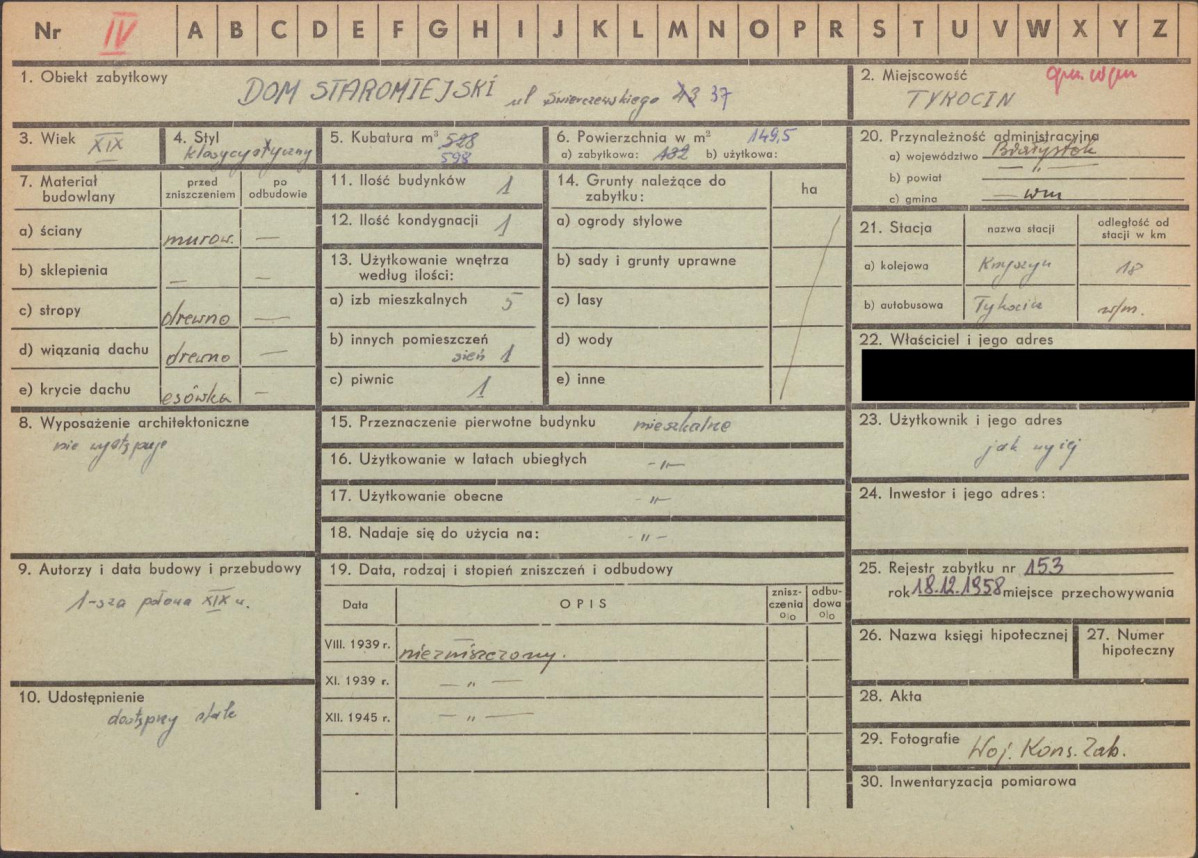 Nr IV A B C D E F G H I J K L M N O P R S T U V W X Y Z
1. Obiekt zabytkowy
DOM STAROMIEJSKI ul Świerczewskiego 43 37
2. Miejscowość
TYKOCIN
3. Wiek XIX
4. Styl
klasycystyczny
5. Kubatura m³ 528
598
6. Powierzchnia w m² 149,5
a) zabytkowa: 132 b) użytkowa:
7. Materiał budowlany
przed zniszczeniem
po odbudowie
a) ściany murow. —
b) sklepienia — —
c) stropy drewno —
d) wiązania dachu drewno —
e) krycie dachu esówka —
8. Wyposażenie architektoniczne
nie występuje
9. Autorzy i data budowy i przebudowy
1-sza połowa XIX w.
10. Udostępnienie
dostępny stale
11. Ilość budynków 1
12. Ilość kondygnacji 1
13. Użytkowanie wnętrza
według ilości:
a) izb mieszkalnych 5
b) innych pomieszczeń
sień 1
c) piwnic 1
14. Grunty należące do
zabytku:
ha
a) ogrody stylowe
b) sady i grunty uprawne
c) lasy
d) wody
e) inne
15. Przeznaczenie pierwotne budynku mieszkalne
16. Użytkowanie w latach ubiegłych -"-
17. Użytkowanie obecne -"-
18. Nadaje się do użycia na: -"-
19. Data, rodzaj i stopień zniszczeń i odbudowy
Data OPIS zniszczenia o|o odbudowa o|o
VIII. 1939 r. niezniszczony.
XI. 1939 r. — " —
XII. 1945 r. — " —
20. Przynależność administracyjna
a) województwo Białystok
b) powiat — " —
c) gmina — wm
21. Stacja
nazwa stacji
odległość od
stacji w km
a) kolejowa Knyszyn 18
b) autobusowa Tykocin w/m.
22. Właściciel i jego adres
23. Użytkownik i jego adres
jak wyżej
24. Inwestor i jego adres:
25. Rejestr zabytku nr 153
rok 18.12.1958 miejsce przechowywania
26. Nazwa księgi hipotecznej
27. Numer
hipoteczny
28. Akta
29. Fotografie Woj. Kons. Zab.
30. Inwentaryzacja pomiarowa